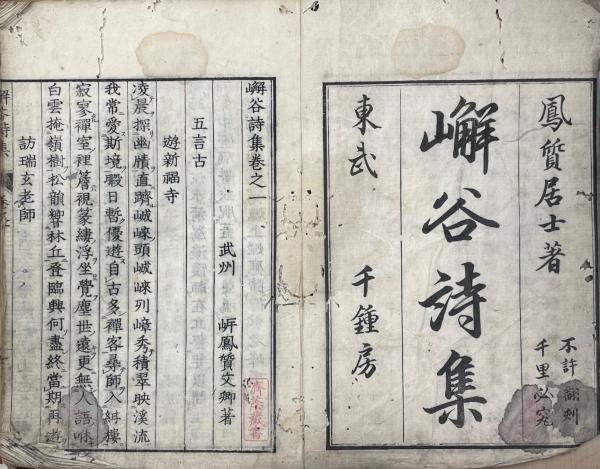 鳳質居士著
嶰谷詩集
東武 千鍾房
不許翻刻
千里必究
嶰谷詩集卷之一
武州 岍鳳質文卿著
五言古
遊新福寺
凌晨探幽賾直躋峸崍頭峸崍列嶂秀積翠映溪流
我常愛斯境暇日暫優遊自古多禪客尋師入絣樓
寂寥禪室裡簷視篆縷浮坐覺塵世遠更無人語咻
白雲掩嶺樹松韻響林丘登臨興何盡終當期再遊
訪瑞玄老師
嶰谷詩集